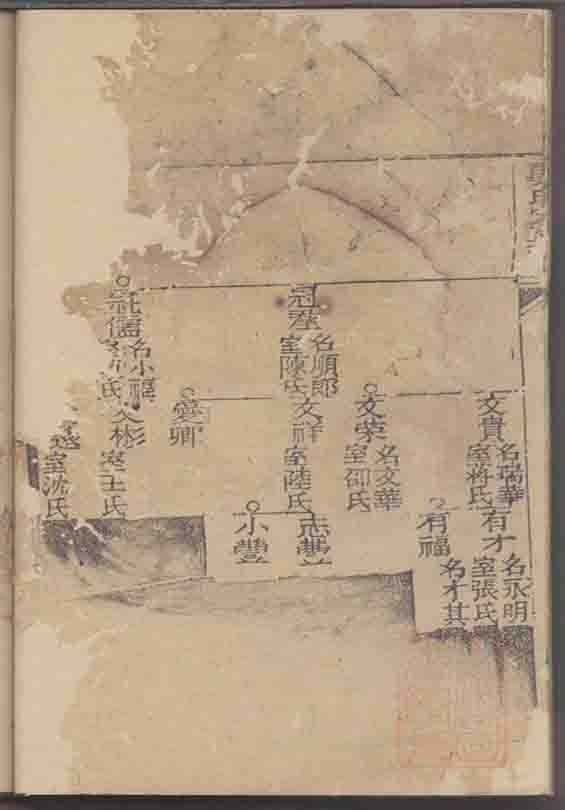 文貴
名瑞華
室蔣氏
有才
名永明
室張氏
有福
名才其
文榮
名文華
室邵氏
冠羣
名順郎
室陳氏
文祥
室陸氏
志豐
小豐
愛卿
名小福
文彬
室王氏
室沈氏